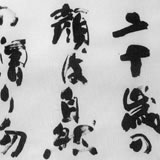 二十歳の
顔は自然
の贈り物